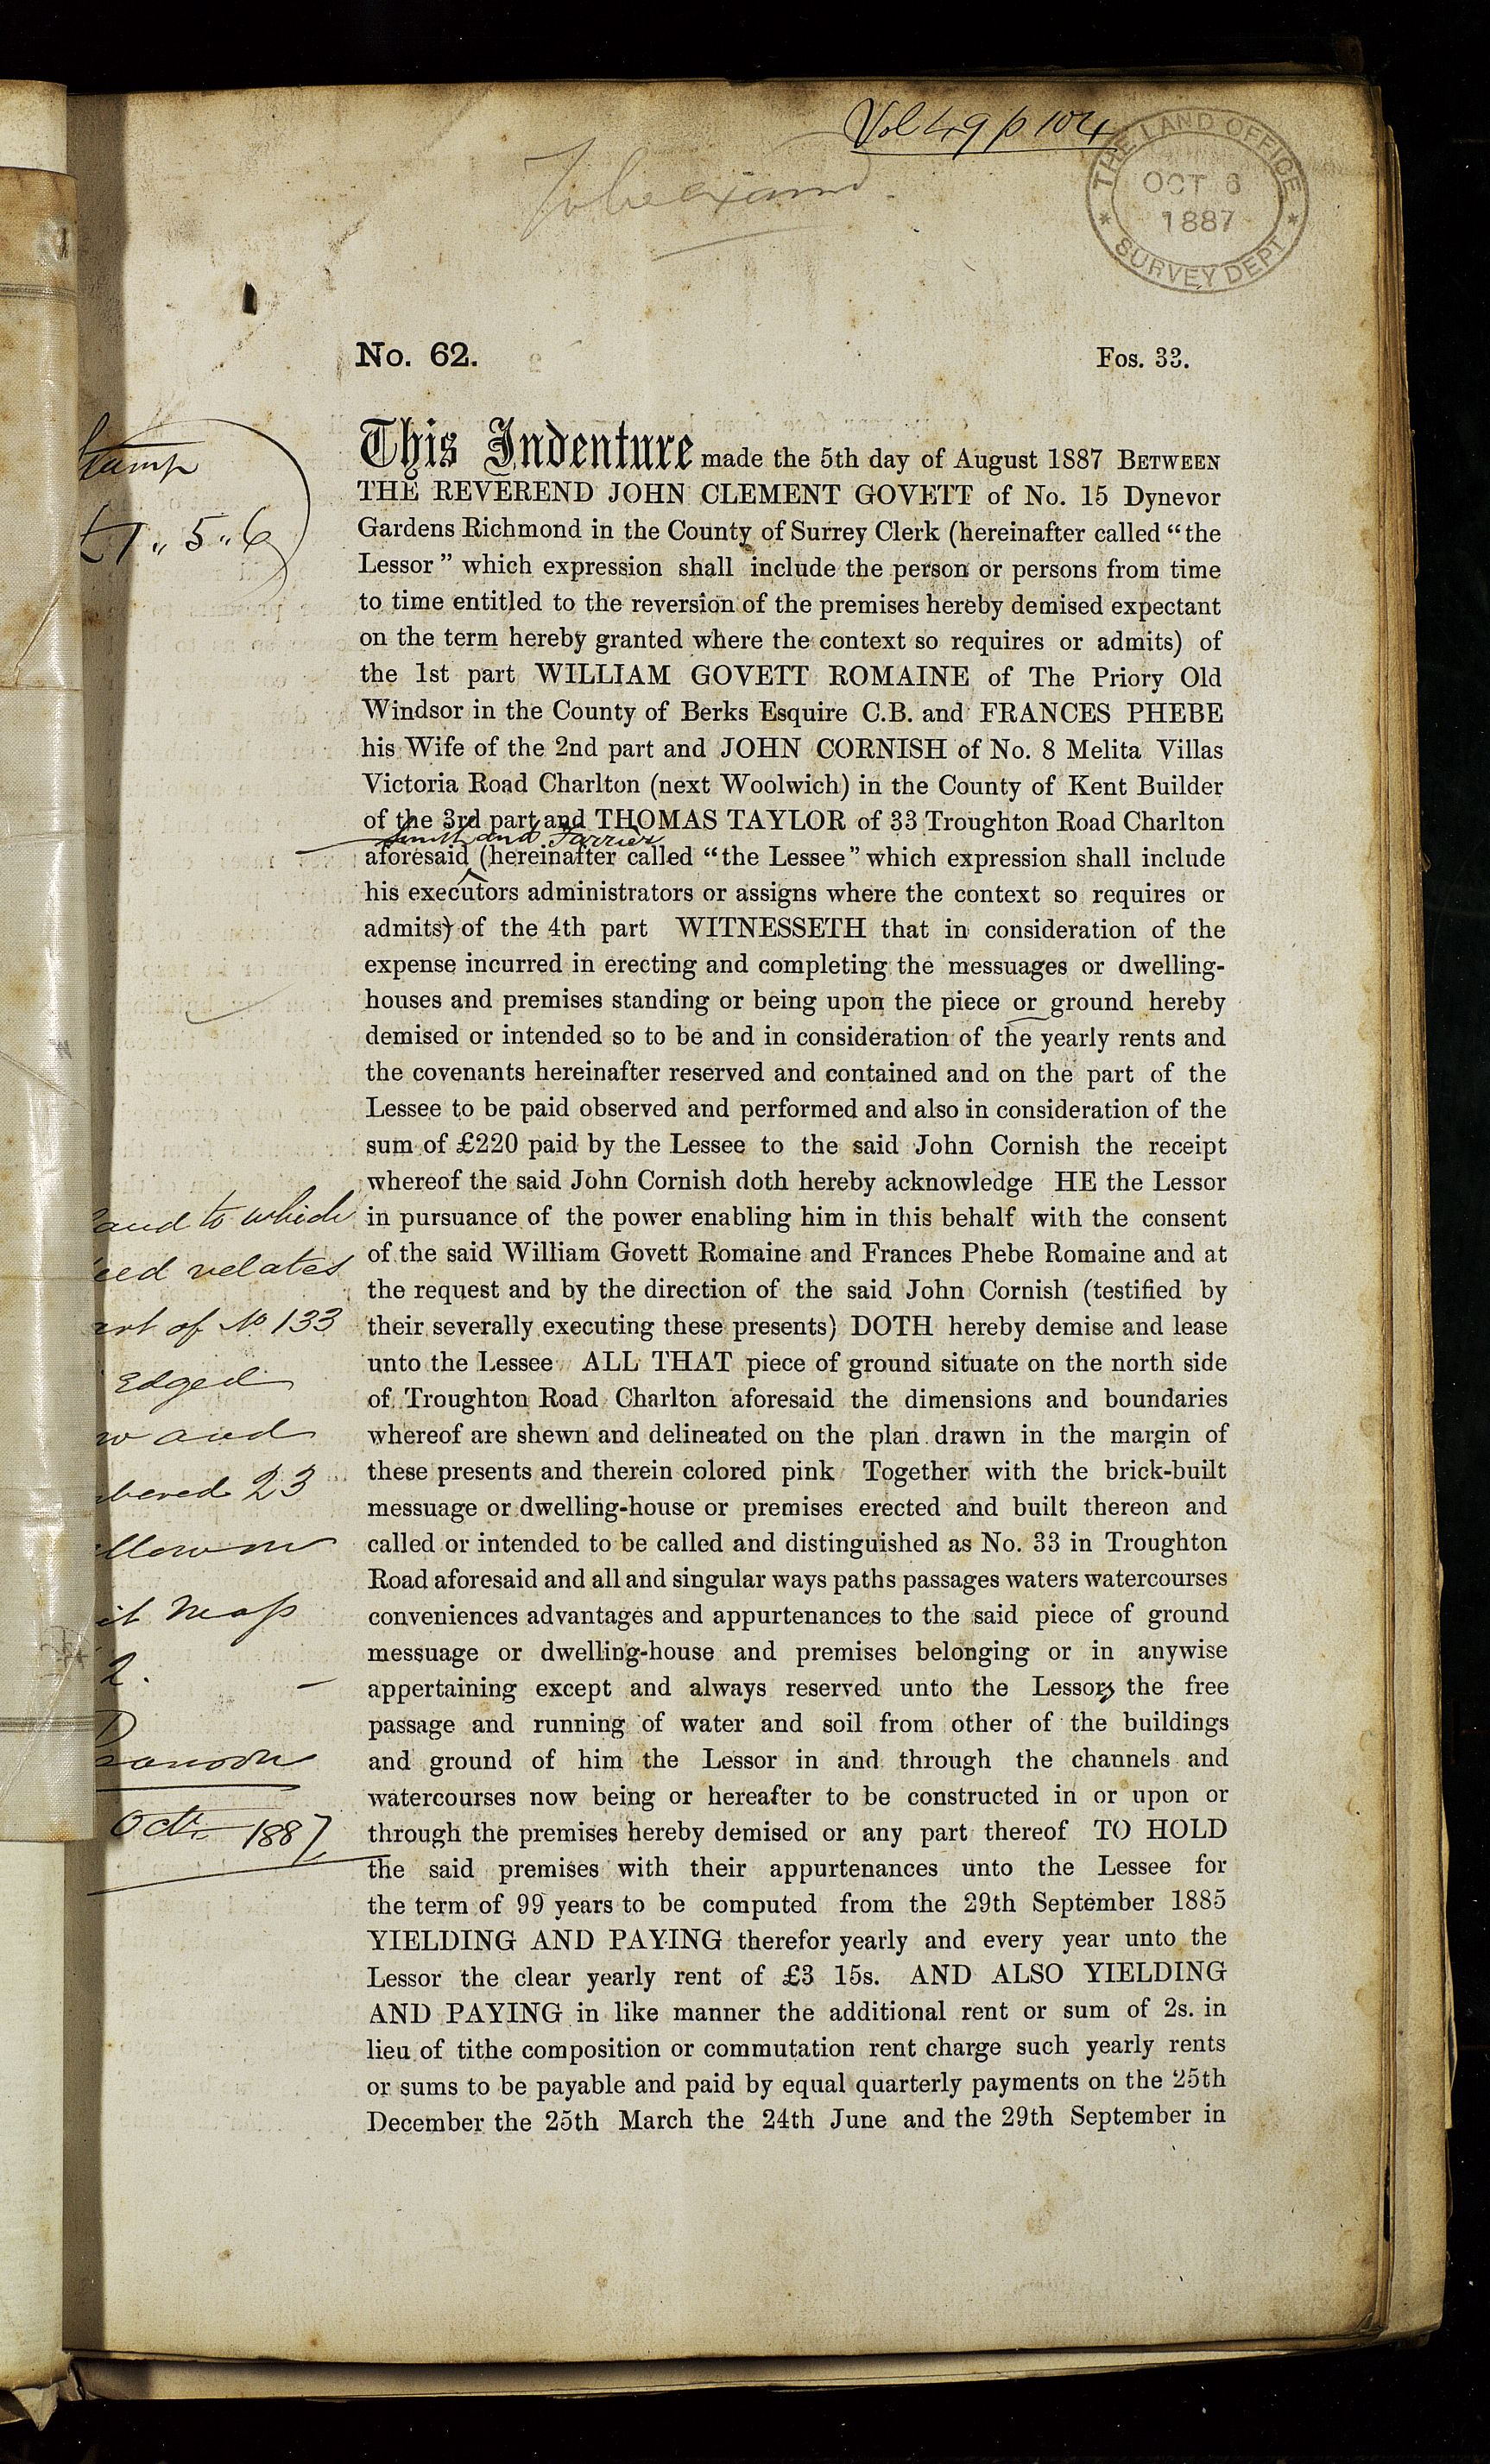 Vol 49 p 104
To be examd.
THE LAND OFFICE
OCT 6
1887
* SURVEY DEPT *
No. 62.
Fos. 33.
Stamp
£1 ,, 5 ,, 6
This Indenture made the 5th day of August 1887 BETWEEN
THE REVEREND JOHN CLEMENT GOVETT of No. 15 Dynevor
Gardens Richmond in the County of Surrey Clerk (hereinafter called "the
Lessor" which expression shall include the person or persons from time
to time entitled to the reversion of the premises hereby demised expectant
on the term hereby granted where the context so requires or admits) of
the 1st part WILLIAM GOVETT ROMAINE of The Priory Old
Windsor in the County of Berks Esquire C.B. and FRANCES PHEBE
his Wife of the 2nd part and JOHN CORNISH of No. 8 Melita Villas
Victoria Road Charlton (next Woolwich) in the County of Kent Builder
of the 3rd part and THOMAS TAYLOR of 33 Troughton Road Charlton
Smith and Farrier
aforesaid (hereinafter called "the Lessee" which expression shall include
his executors administrators or assigns where the context so requires or
admits) of the 4th part WITNESSETH that in consideration of the
expense incurred in erecting and completing the messuages or dwelling-
houses and premises standing or being upon the piece or ground hereby
demised or intended so to be and in consideration of the yearly rents and
the covenants hereinafter reserved and contained and on the part of the
Lessee to be paid observed and performed and also in consideration of the
sum of £220 paid by the Lessee to the said John Cornish the receipt
whereof the said John Cornish doth hereby acknowledge HE the Lessor
in pursuance of the power enabling him in this behalf with the consent
of the said William Govett Romaine and Frances Phebe Romaine and at
the request and by the direction of the said John Cornish (testified by
their severally executing these presents) DOTH hereby demise and lease
unto the Lessee ALL THAT piece of ground situate on the north side
of Troughton Road Charlton aforesaid the dimensions and boundaries
whereof are shewn and delineated on the plan drawn in the margin of
these presents and therein colored pink Together with the brick-built
messuage or dwelling-house or premises erected and built thereon and
called or intended to be called and distinguished as No. 33 in Troughton
Road aforesaid and all and singular ways paths passages waters watercourses
conveniences advantages and appurtenances to the said piece of ground
messuage or dwelling-house and premises belonging or in anywise
appertaining except and always reserved unto the Lessors the free
passage and running of water and soil from other of the buildings
and ground of him the Lessor in and through the channels and
watercourses now being or hereafter to be constructed in or upon or
through the premises hereby demised or any part thereof TO HOLD
the said premises with their appurtenances unto the Lessee for
the term of 99 years to be computed from the 29th September 1885
YIELDING AND PAYING therefor yearly and every year unto the
Lessor the clear yearly rent of £3 15s. AND ALSO YIELDING
AND PAYING in like manner the additional rent or sum of 2s. in
lieu of tithe composition or commutation rent charge such yearly rents
or sums to be payable and paid by equal quarterly payments on the 25th
December the 25th March the 24th June and the 29th September in
and to which
eed relates
art of No 133
Edged
w and
bered 23
llow on
it Map
2.
Octr. 1887